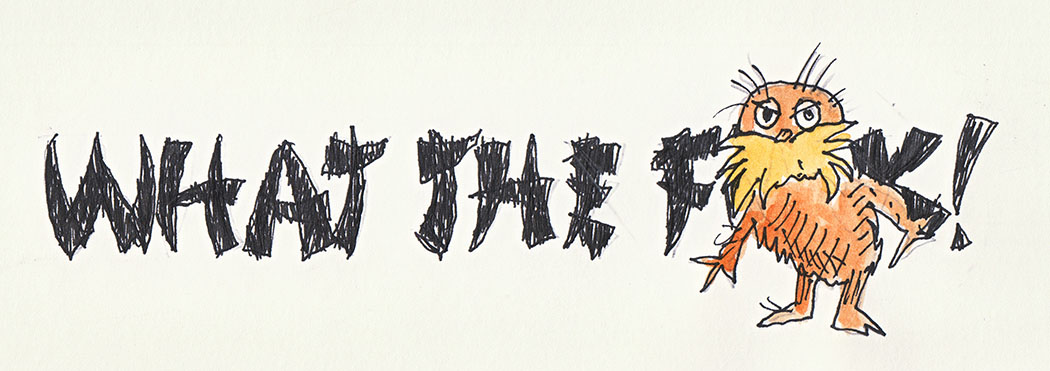 WHAT THE F K!